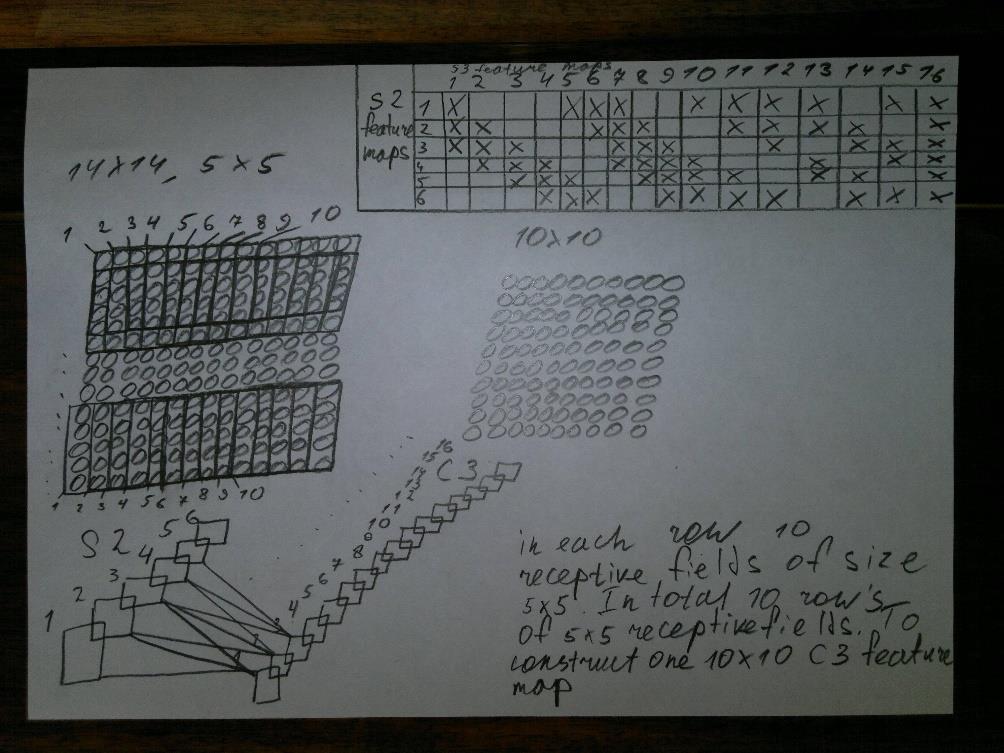 S3 feature maps
1 2 3 4 5 6 7 8 9 10 11 12 13 14 15 16
S2
feature
maps
1 X X X X X X X X X X
2 X X X X X X X X X X
3 X X X X X X X X X X
4 X X X X X X X X X X
5 X X X X X X X X X X
6 X X X X X X X X X X
14X14, 5X5
1 2 3 4 5 6 7 8 9 10
10X10
1 2 3 4 5 6 7 8 9 10
S2
1 2 3 4 5 6
C3
1 2 3 4 5 6 7 8 9 10 11 12 13 14 15 16
in each row 10
receptive fields of size
5X5. In total 10 row's
of 5x5 receptive fields. To
construct one 10X10 C3 feature
map